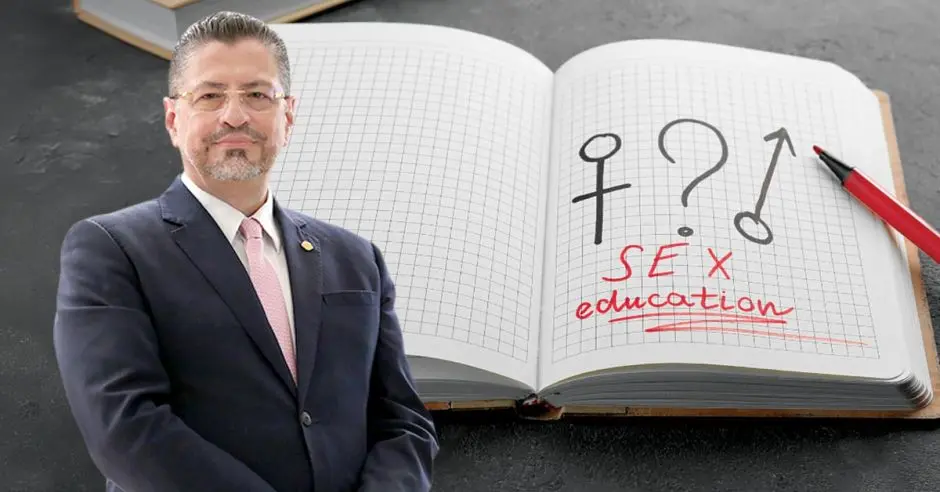 ?
SEX
education